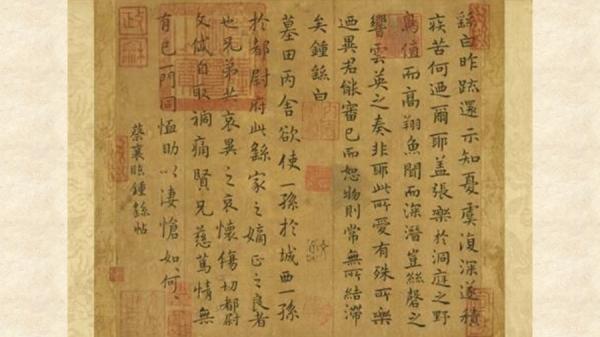 繇白昨疏還示知憂虞復深遂積
疾苦何迺爾耶蓋張樂於洞庭之野
鳥值而高翔魚聞而深潛豈絲磬之
響雲英之奏非耶此所愛有殊所樂
迺異君能審己而恕物則常無所結滯
矣鍾繇白
墓田丙舍欲使一孫於城西一孫
於都尉府此繇家之嫡正之良者
也兄弟共哀異之哀懷傷切都尉
文岱自取禍痛賢兄慈篤情無
有已一門同恤助以悽愴如何
蔡襄臨鍾繇帖